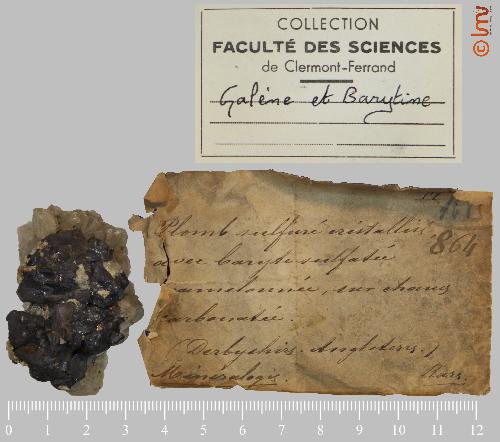 COLLECTION
FACULTÉ DES SCIENCES
de Clermont-Ferrand
Galène et Barytine
lmv
864
Plomb sulfuré cristallisé
avec baryte sulfatée
mamelonnée, sur chaux
carbonatée.
(Derbyshire. Angleterre.)
Minéralogie.
0 1 2 3 4 5 6 7 8 9 10 11 12